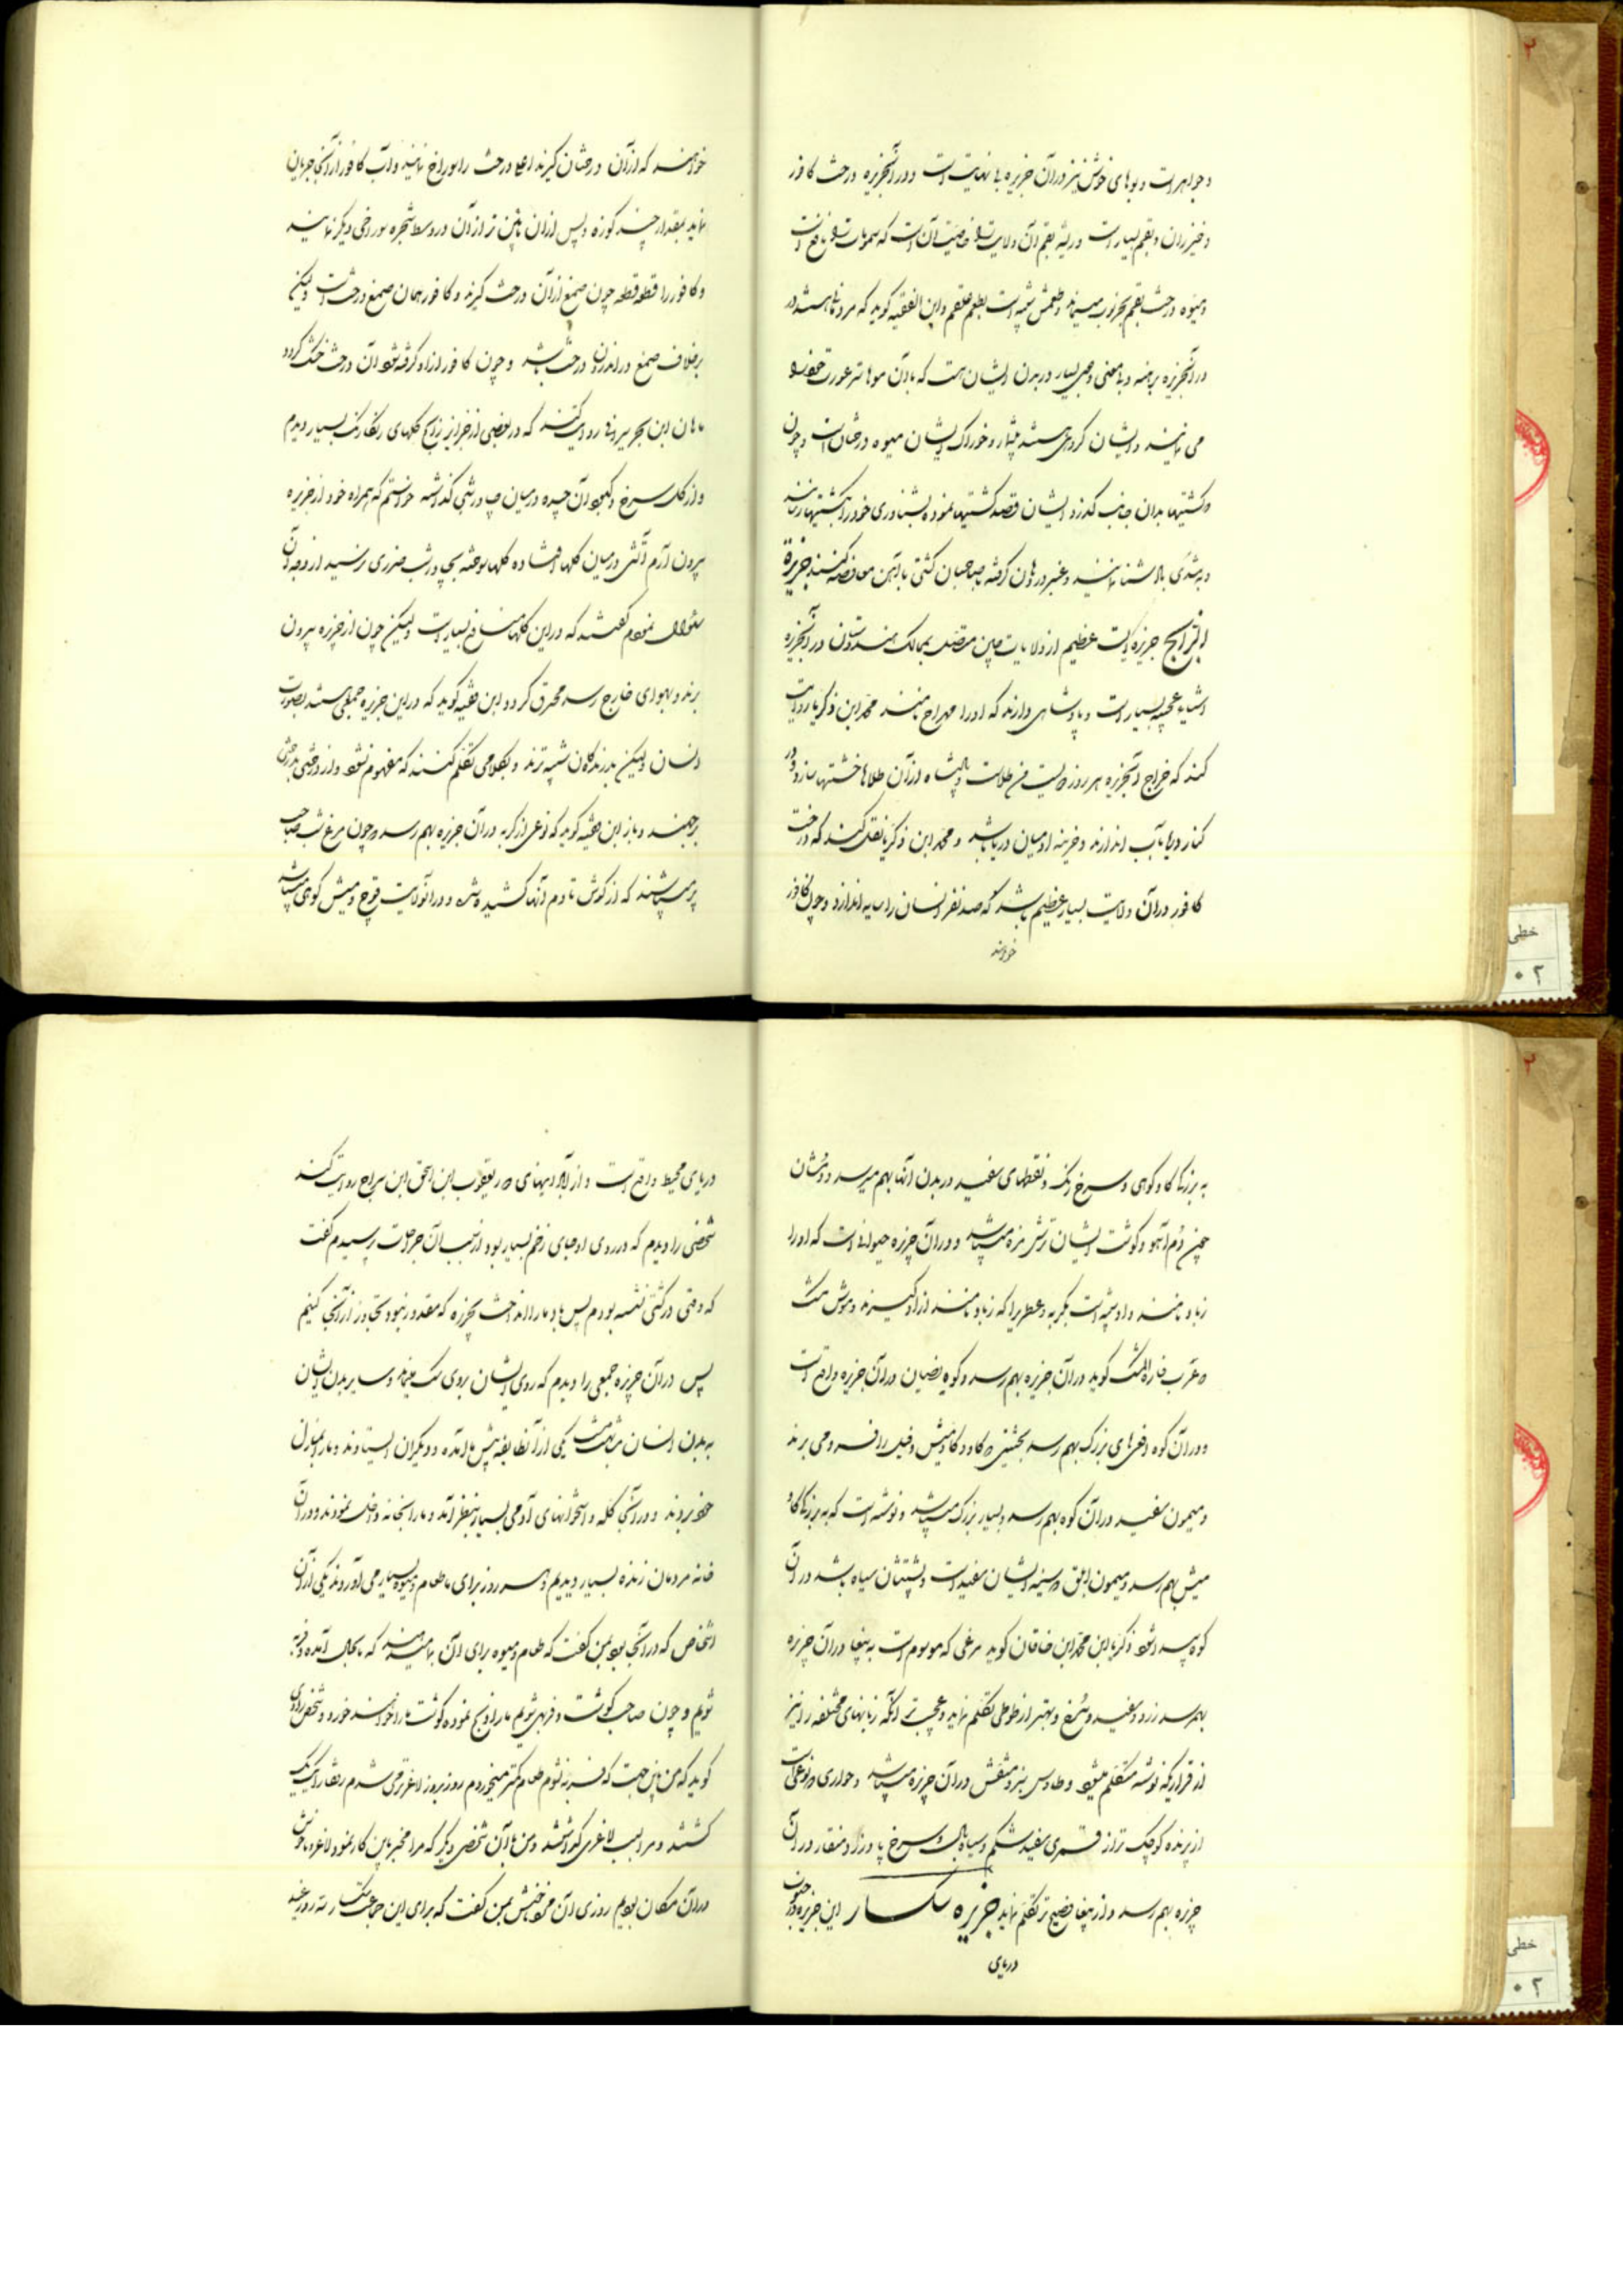 و جواهر است و بوهای خوش نیز در آن جزیره بی نهایت است و در آنجزیره درخت کافور
و خیزران و بقم بسیار است و ریشه بقم آن ولایت خاصیت آن است که سموماترا نافع است
و میوه درخت بقم بخرنوب میماند و طعمش شبیه است بطعم علقم و ابن الفقیه گوید که مردمانی هستند در
در آنجزیره برهنه و بی معنی و موی بسیار در بدن ایشان هست که بآن موها ستر عورت خود را
می نمایند و ایشان گروهی هستند بیشمار و خوراک ایشان میوه درختان است و چون
کشتیها بدان جانب گذرد ایشان قصد کشتیها نموده بشناوری خود را بکشتیها رسانند
و بتندی باد شنا نمایند و عنبر در دهان گرفته بصاحبان کشتی با آهن معاوضه کنند جزیرة
الزابج جزیره ایست عظیم از ولایات چین متصل بممالک هندوستان در آنجزیره
اشیاء عجیبه بسیار است و پادشاهی دارند که او را مهراج نامند محمد ابن ذکریا روایت
کند که خراج آنجزیره هر روز دویست من طلاست و پادشاه از آن طلاها خشتها سازد و در
کنار دریا بآب اندازند و خزینه او میان دریا باشد و محمد ابن ذکریا نقل کند که درخت
کافور در آن ولایت بسیار عظیم باشد که صد نفر انسان را سایه اندازد و چون کافور
خواهند
خواهند که از آن درختان گیرند اعلای درخت را سوراخ نمایند و آب کافور از آنجا جریان
نماید بمقدار چند کوزه و پس از آن پائین تر از آن در وسط شجره سوراخی دیگر نمایند
و کافور را قطعه قطعه چون صمغ از آن درخت گیرند و کافور همان صمغ درخت است ولیکن
برخلاف صمغ در اندرون درخت باشد و چون کافور از او گرفته شود آن درخت خشک گردد
ماهان ابن بحر سیرافی روایت کند که در بعضی از جزایر زابج گلهای رنگارنگ بسیار دیدم
و از گل سرخ و کبود آن چیده در میان چادر شبی گذاشته خواستم که همراه خود از جزیره
بیرون آرم آتشی در میان گلها افتاده گلها سوخته بچادر شب ضرری نرسید از وجه آن
سئوال نمودم گفتند که در این گلها منافع بسیار است ولیکن چون از جزیره بیرون
برند و بهوای خارج رسد محترق گردد ابن فقیه گوید که در این جزیره جمعی هستند بصورت
انسان ولیکن بدرندگان شبیه ترند و بکلامی تکلم کنند که مفهوم نشود و از درختی بدرختی
برجهند و باز ابن فقیه گوید که نوعی از گربه در آن جزیره بهم رسد چون مرغ شب صاحب
پر میباشند که از گوش تا دم آنها کشیده شده و در آنولایت قوچ و میش کوهی میباشد
به بزرگی گاو کوهی و سرخ رنگ و نقطهای سفید در بدن آنها بهم میرسد و دمشان
چون دم آهو و گوشت ایشان ترش مزه میباشد و در آن جزیره حیوانی است که او را
زباد نامند و او شبیه است بگربه و عطریرا که زباد نامند از او گیرند و موش مشک
عرب فارة المشک گوید در آن جزیره بهم رسد و کوه نصبان در آن جزیره واقع است
و در آن کوه افعی های بزرگ بهم رسد بحیثیتی که گاو و گاومیش و فیل را فرو می برند
و میمون سفید در آن کوه بهم رسد و بسیار بزرگ میباشد و نوشته است که به بزرگی گاو
میش بهم رسد و میمون ابلق که سینه ایشان سفید است و پشتشان سیاه باشد در آن
کوه پیدا شود ذکریا ابن محمد ابن خاقان گوید مرغی که موسوم است به ببغا در آن جزیره
بهم رسد زرد و سفید و سرخ و بهتر از طوطی تکلم نماید و عجیب تر آنکه زبانهای مختلفه را نیز
از قراریکه نوشته متکلم میشود و طاوس سبز و منقش در آن جزیره میباشد و حواری که نوعی است
از پرنده کوچک تر از قمری سفید شکم و سیاه بال و سرخ پا و زرد منقار در آن
جزیره بهم رسد و از ببغا فصیح تر تکلم نماید جزیره سکسار این جزیره در جنوب
دریای
دریای محیط واقع است و از آبادیهای یعقوب ابن اسحق ابن سراج روایت کند
شخصی را دیدم که در روی او جای زخم بسیار بود از سبب آن جراحات پرسیدم گفت
که وقتی در کشتی نشسته بودم پس باد ما را انداخت بجزیره که مقدور نبود تجاوز از آنجا کنیم
پس در آن جزیره جمعی را دیدم که روی ایشان بروی سگ میماند و سایر بدن ایشان
به بدن انسان مشابهت داشت یکی از آنطایفه پیش ما آمده و دیگران ایستادند و ما را بمنازل
خود بردند و در آنجا کله و استخوانهای آدمی بسیار بنظر آمد و ما را بخانه داخل نمودند و در آن
خانه مردمان زنده بسیار دیدیم و هر روز برای ما طعام و میوه بسیار می آوردند یکی از آن
اشخاص که در آنجا بود بمن گفت که طعام و میوه برای آن بما میدهند که ما بحال آمده و فربه
شویم و چون صاحب گوشت و فربهی شویم ما را ذبح نموده گوشت ما را خواهند خورد و شخص راوی
گوید که من باین جهت که فربه نشوم طعام کمتر میخوردم روز بروز لاغرتر می شدم رفقا را یک یک
کشتند و مرا بسبب لاغری گذاشتند و من با آن شخص دیگر که مرا مخبر باین کار نمود لاغر و ناخوش
در آن مکان بودیم روزی آن شخص بمن گفت که برای این جماعت سکسار سه روز عید